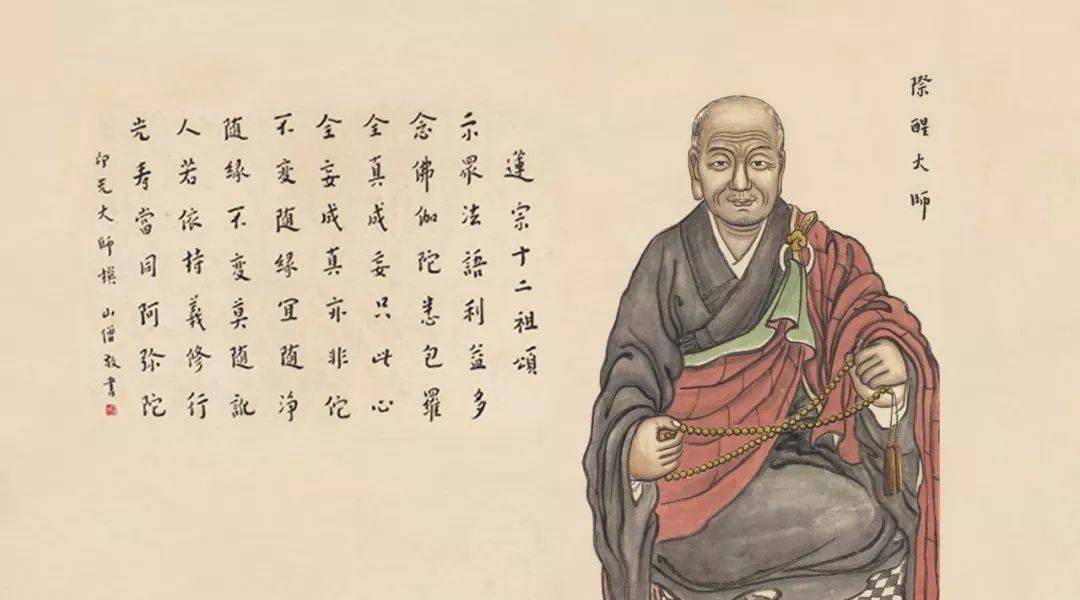 際醒大師
蓮宗十二祖頌
示眾法語利益多
念佛伽陀悉包羅
全真成妄只此心
全妄成真亦非佗
不變随緣冝随淨
随緣不變莫随訛
人若依持義修行
光寿當同阿弥陀
印光大師撰 山僧敬書